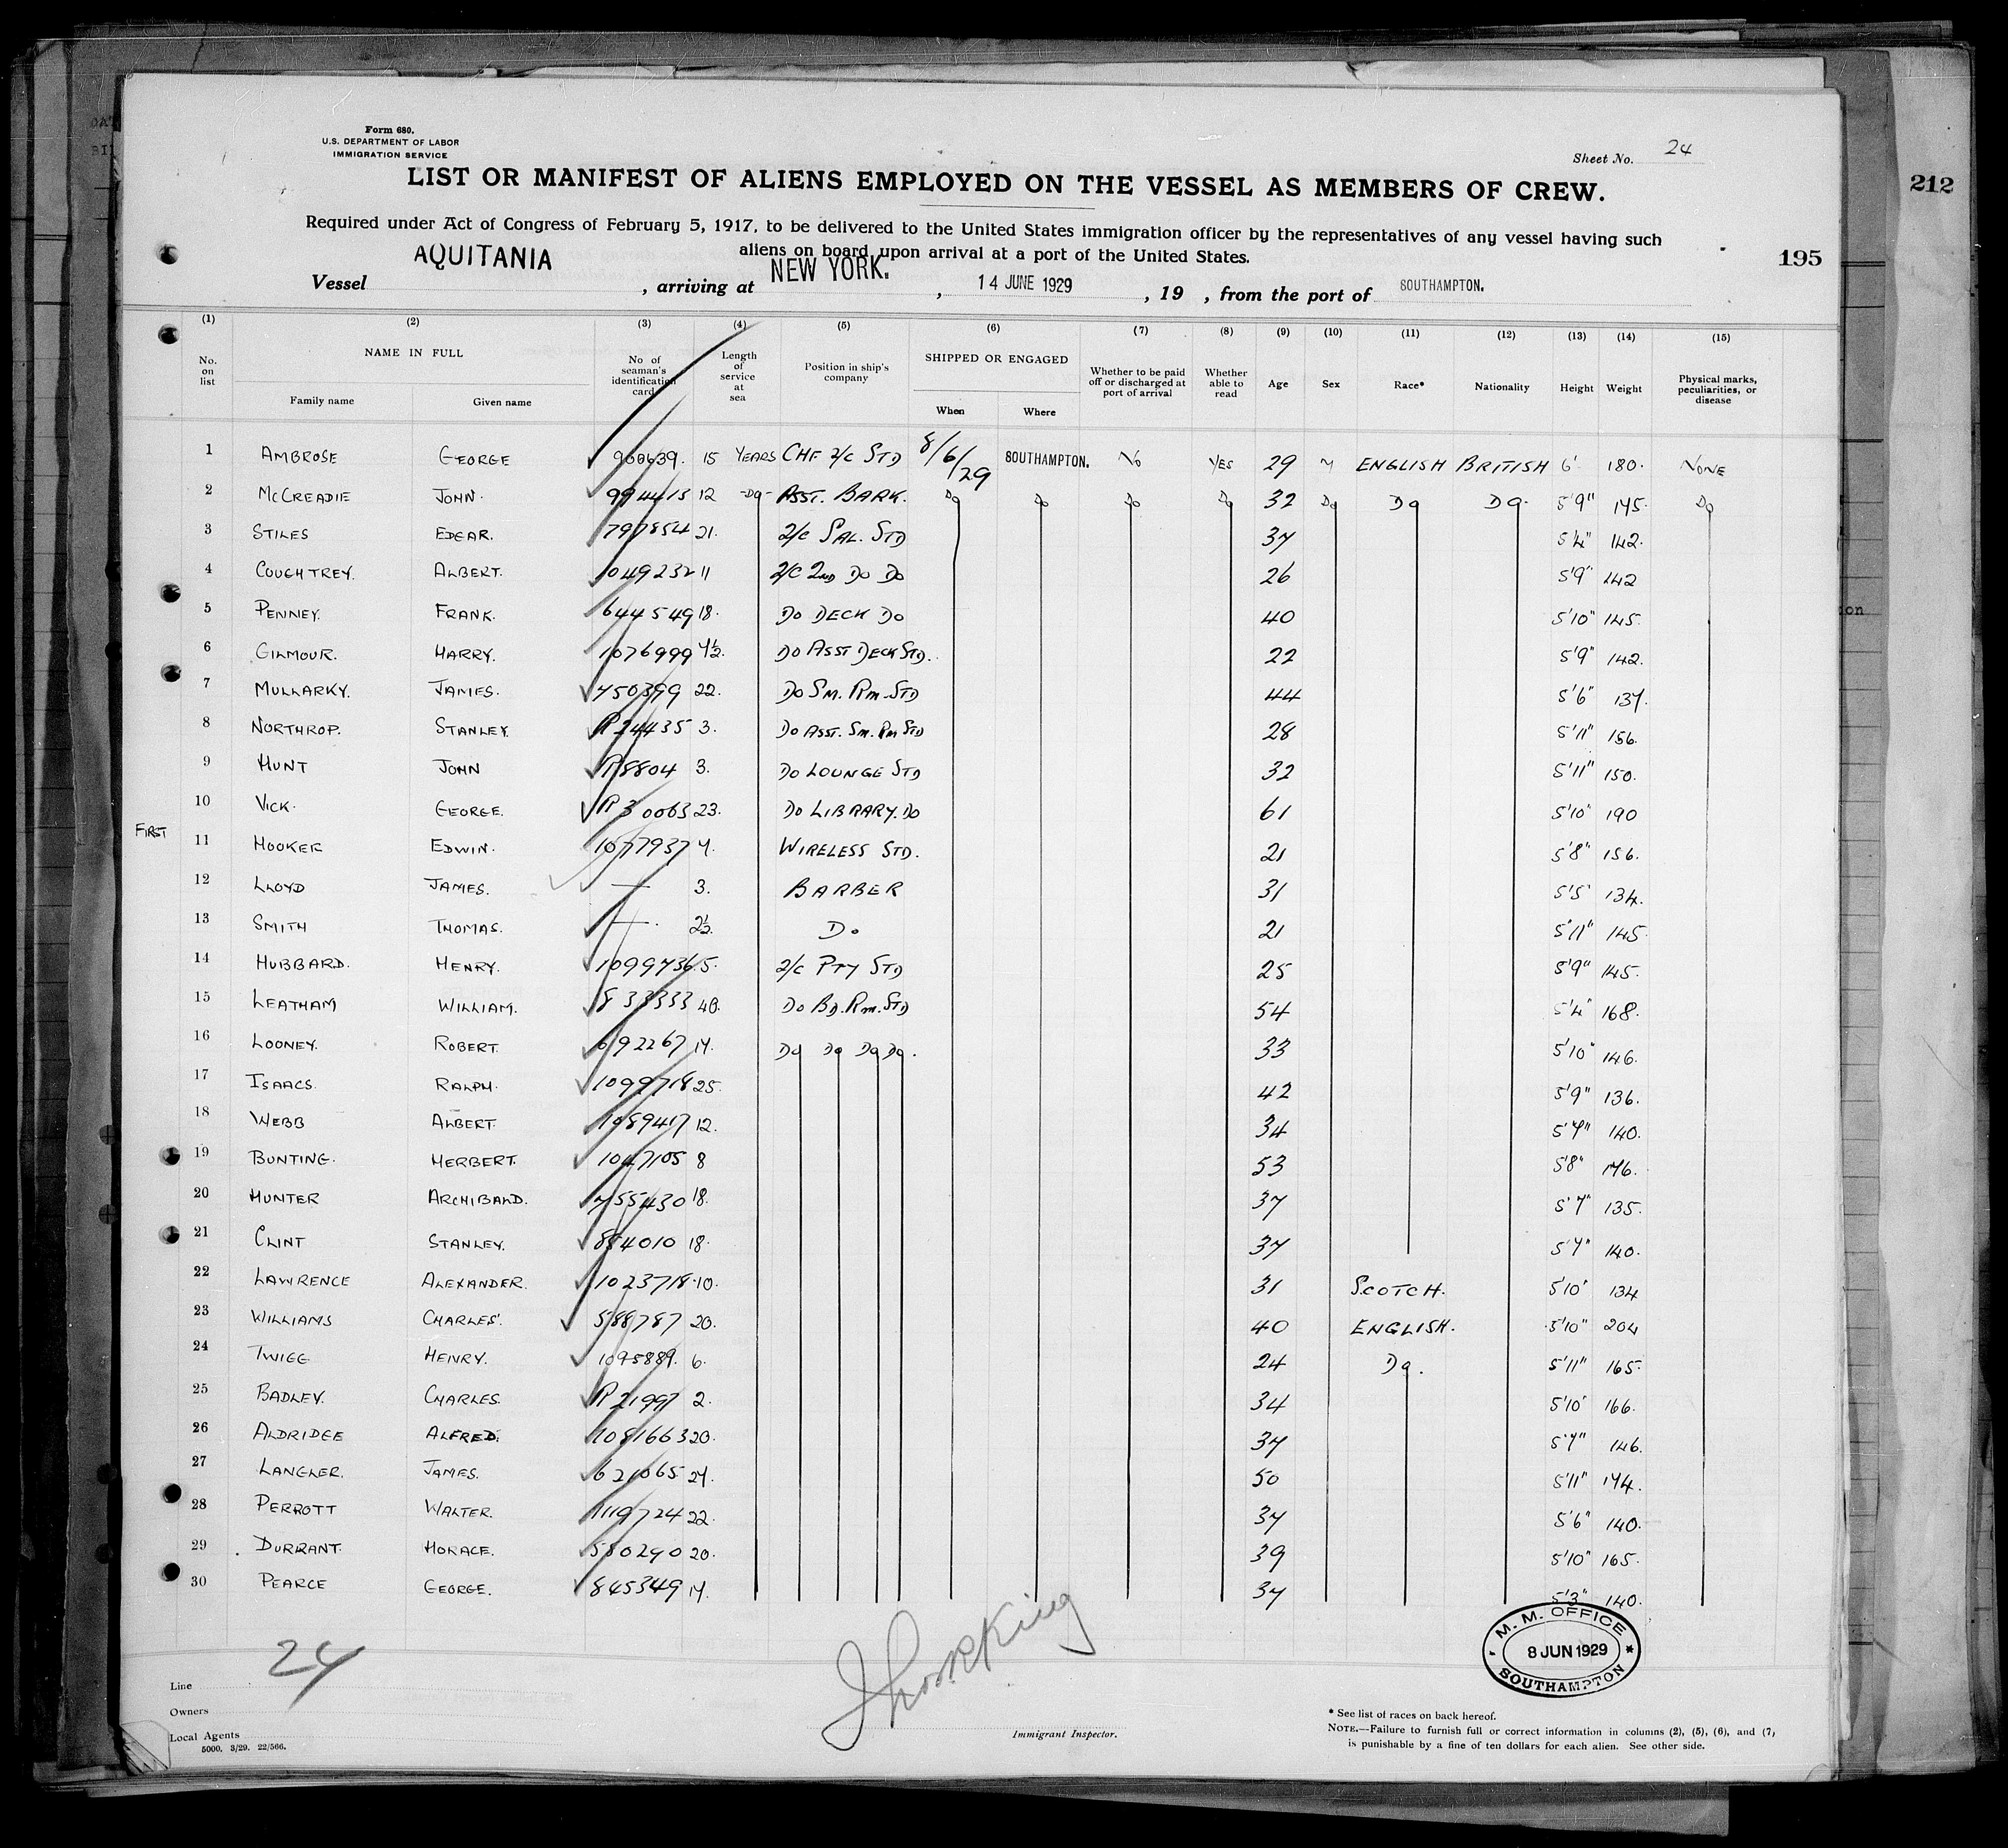 Form 680.
U.S. DEPARTMENT OF LABOR
IMMIGRATION SERVICE
Sheet No. 24
LIST OR MANIFEST OF ALIENS EMPLOYED ON THE VESSEL AS MEMBERS OF CREW.
212
Required under Act of Congress of February 5, 1917, to be delivered to the United States immigration officer by the representatives of any vessel having such
aliens on board upon arrival at a port of the United States.
195
Vessel AQUITANIA, arriving at NEW YORK., 14 JUNE 1929, 19 , from the port of SOUTHAMPTON.
(1) (2) (3) (4) (5) (6) (7) (8) (9) (10) (11) (12) (13) (14) (15)
No. on list NAME IN FULL Family name Given name No of seaman's identification card Length of service at sea Position in ship's company SHIPPED OR ENGAGED When Where Whether to be paid off or discharged at port of arrival Whether able to read Age Sex Race* Nationality Height Weight Physical marks, peculiarities, or disease
1 AMBROSE GEORGE 900639. 15 YEARS CHF 2/C STD 8/6/29 SOUTHAMPTON. NO YES 29 M ENGLISH BRITISH 6' 180. NONE
2 McCREADIE JOHN. 994413 12 -DO- ASST. BARK. DO DO DO DO 32 DO DO DO. 5'9" 145. DO
3 STILES EDGAR. 797854 21. 2/C SAL. STD 37 5'4" 142.
4 COUGHTREY. ALBERT. 1049232 11 2/C 2ND DO DO 26 5'9" 142
5 PENNEY. FRANK. 644549 18. DO DECK DO 40 5'10" 145.
6 GILMOUR. HARRY. 1076999 4½. DO ASST DECK STD. 22 5'9" 142.
7 MULLARKY. JAMES. 750399 22. DO SM. RM. STD 44 5'6" 137.
8 NORTHROP. STANLEY. R24435 3. DO ASST. SM. RM STD 28 5'11" 156.
9 HUNT JOHN R8804 3. DO LOUNGE STD 32 5'11" 150.
10 VICK. GEORGE. R30063 23. DO LIBRARY. DO 61 5'10" 190
FIRST
11 HOOKER EDWIN. 1077937 7. WIRELESS STD. 21 5'8" 156.
12 LLOYD JAMES. — 3. BARBER 31 5'5" 134.
13 SMITH THOMAS. —. 2½. DO 21 5'11" 145.
14 HUBBARD. HENRY. 1099736 5. 2/C PTY STD 25 5'9" 145.
15 LEATHAM WILLIAM. 833333 40. DO BD. RM. STD 54 5'4" 168.
16 LOONEY. ROBERT. 692267 17. DO DO DO DO. 33 5'10" 146.
17 ISAACS. RALPH. 1099718 25. 42 5'9" 136.
18 WEBB ALBERT. 1089417 12. 34 5'7" 140.
19 BUNTING. HERBERT. 1047105 8 53 5'8" 176.
20 HUNTER ARCHIBALD. 755430 18. 37 5'7" 135.
21 CLINT STANLEY. 884010 18. 37 5'7" 140.
22 LAWRENCE ALEXANDER. 1023718 10. 31 SCOTCH. 5'10" 134
23 WILLIAMS CHARLES. 588787 20. 40 ENGLISH. 5'10" 204
24 TWIGG HENRY. 1095889. 6. 24 DO. 5'11" 165.
25 BADLEY. CHARLES. R21997 2. 34 5'10" 166.
26 ALDRIDGE ALFRED. 1081663 20. 37 5'7" 146.
27 LANGLER. JAMES. 621065 27. 50 5'11" 174.
28 PERROTT WALTER. 1119724 22. 37 5'6" 140.
29 DURRANT. HORACE. 580290 20. 39 5'10" 165.
30 PEARCE GEORGE. 845349 17. 37 5'3" 140.
M. M. OFFICE
8 JUN 1929
SOUTHAMPTON
24
Line
Owners
Local Agents
5000. 3/29. 22/566.
Immigrant Inspector.
* See list of races on back hereof.
NOTE.—Failure to furnish full or correct information in columns (2), (5), (6), and (7)
is punishable by a fine of ten dollars for each alien. See other side.